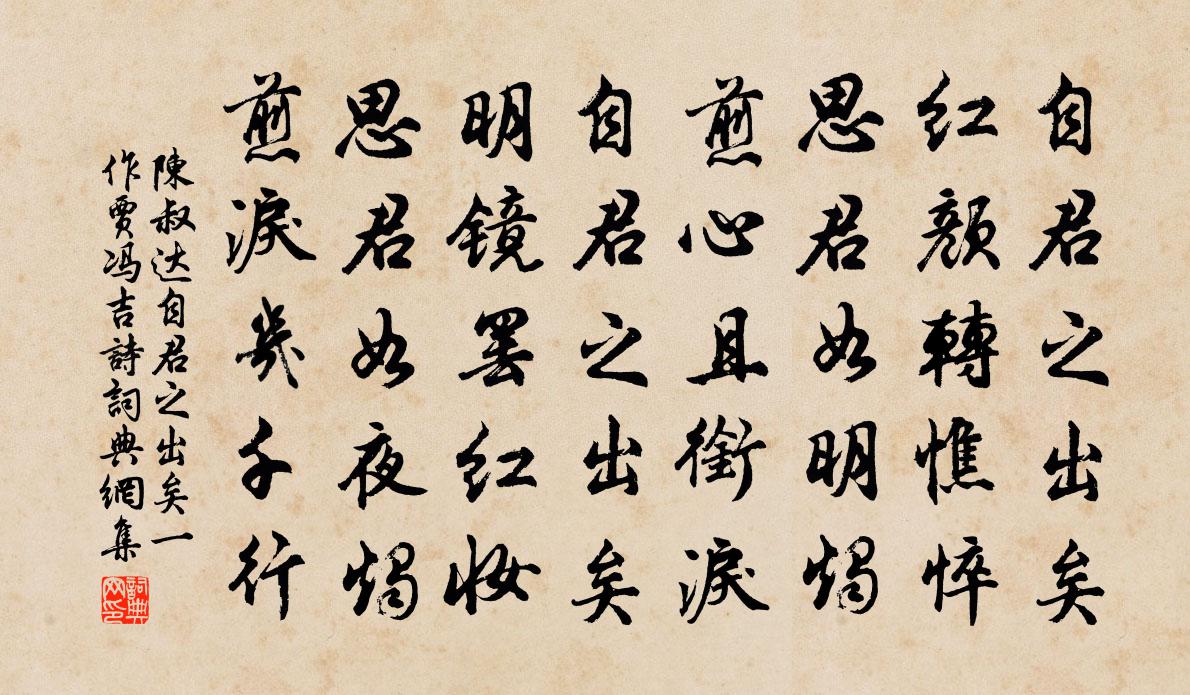 自君之出矣
红顏轉憔悴
思君如明燭
煎心且銜淚
自君之出矣
明镜罢红妆
思君如夜燭
煎淚幾千行
陳叔达自君之出矣一
作賈冯吉詩詞典網集
詞典
网印